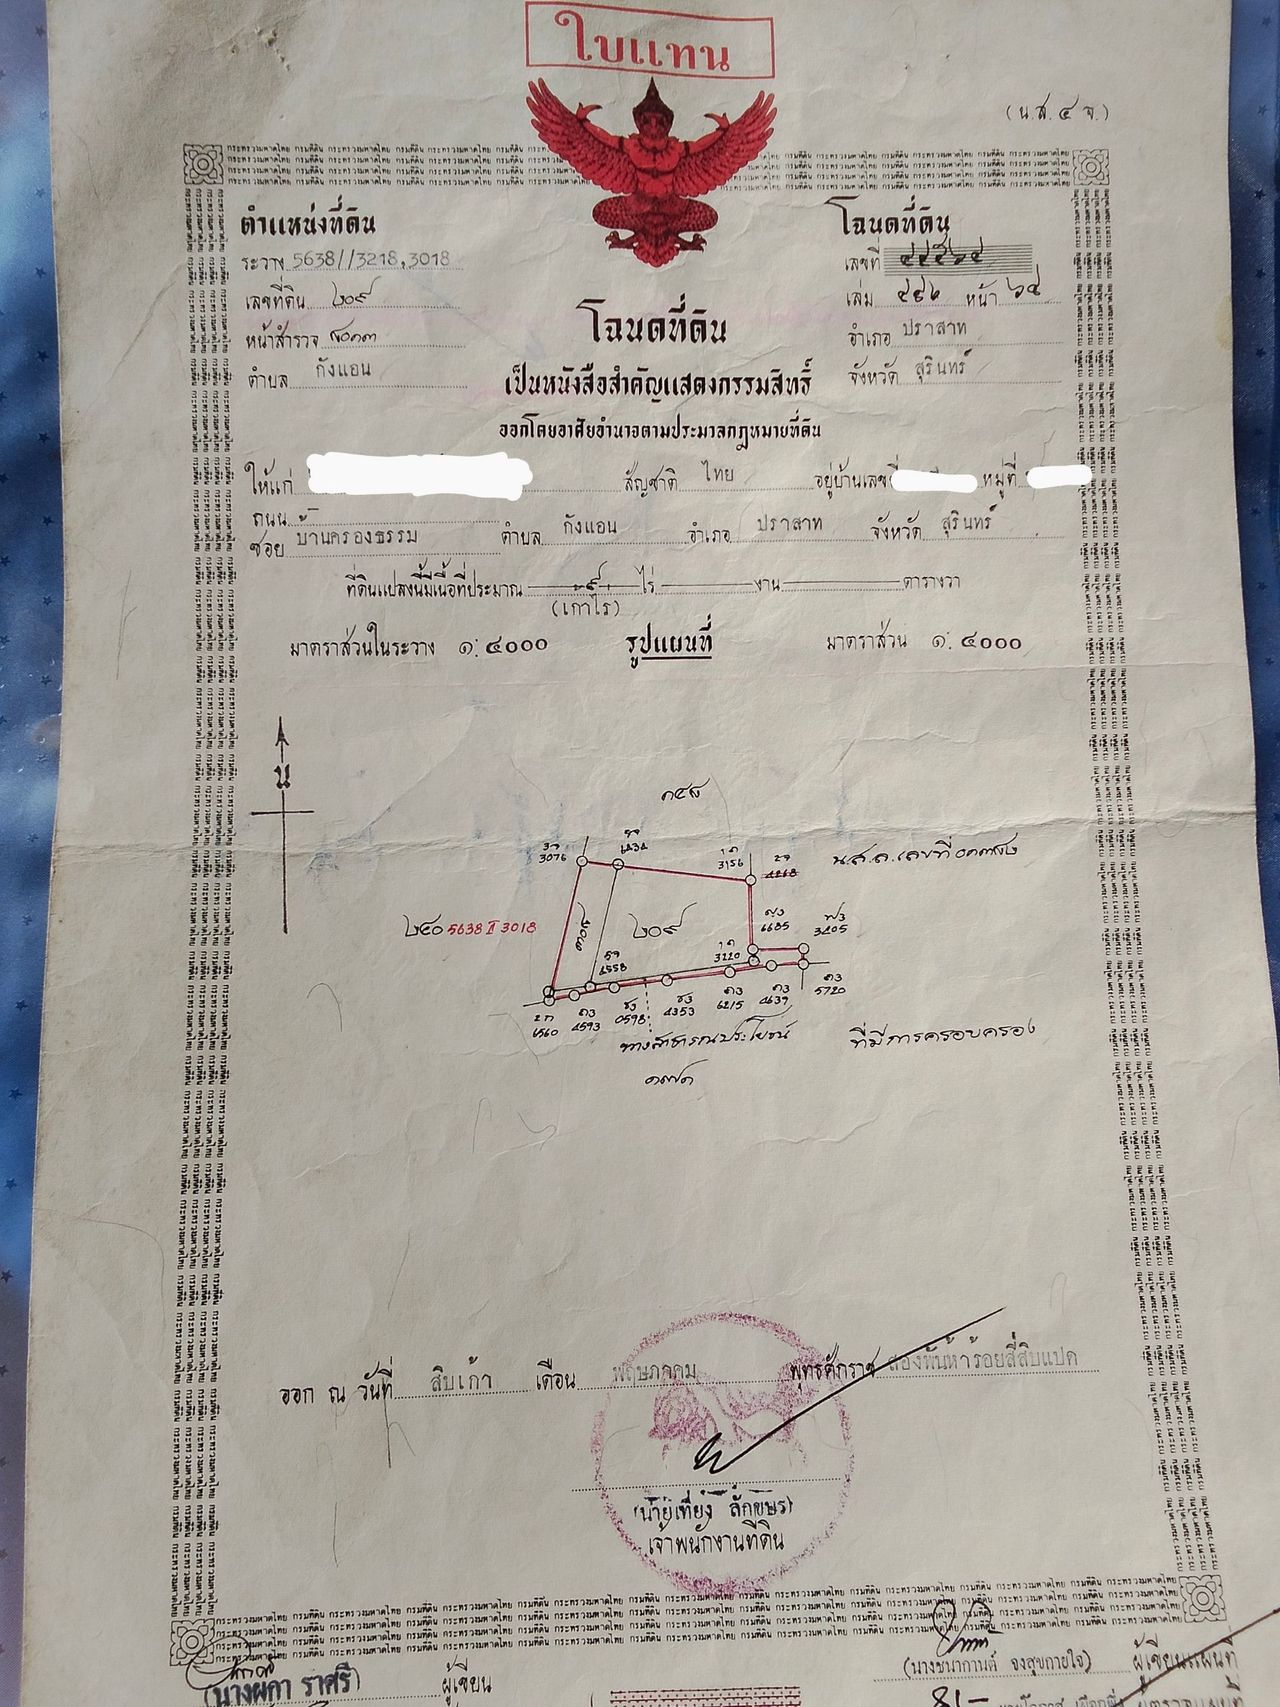 ใบแทน
(น.ส.๔ จ.)
ตำแหน่งที่ดิน
ระวาง 5638//3218,3018
เลขที่ดิน ๒๐๙
หน้าสำรวจ
ตำบล กังแอน
โฉนดที่ดิน
เลขที่
เล่ม หน้า ๖๔
อำเภอ ปราสาท
จังหวัด สุรินทร์
โฉนดที่ดิน
เป็นหนังสือสำคัญแสดงกรรมสิทธิ์
ออกโดยอาศัยอำนาจตามประมวลกฎหมายที่ดิน
ให้แก่ สัญชาติ ไทย อยู่บ้านเลขที่ หมู่ที่
ถนน –
ซอย บ้านครองธรรม ตำบล กังแอน อำเภอ ปราสาท จังหวัด สุรินทร์
ที่ดินแปลงนี้มีเนื้อที่ประมาณ ๙ ไร่ งาน ตารางวา
(เก้าไร่)
มาตราส่วนในระวาง ๑:๔๐๐๐ รูปแผนที่ มาตราส่วน ๑:๔๐๐๐
น
3076 3156
น.ส.๓ เลขที่
๒๔๐ 5638 II 3018 ๒๐๙ 6685 3405
6558 3220
6560 4593 0598 4353 6215 4639 5720
ทางสาธารณประโยชน์ ที่มีการครอบครอง
ออก ณ วันที่ สิบเก้า เดือน พฤษภาคม พุทธศักราช สองพันห้าร้อยสี่สิบแปด
(นายเที่ยง ลักขษร)
เจ้าพนักงานที่ดิน
(นางผกา ราศรี) ผู้เขียน
(นางชนากานต์ จงสุขกายใจ) ผู้เขียนแผนที่